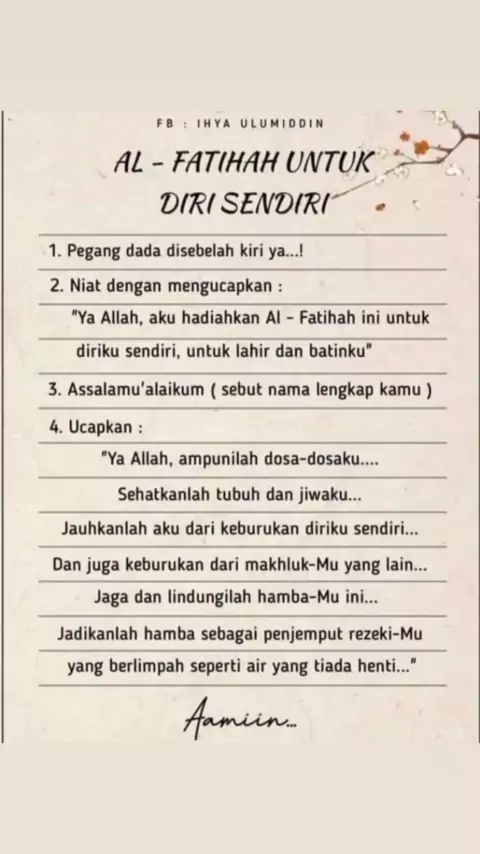 FB : IHYA ULUMIDDIN
AL - FATIHAH UNTUK
DIRI SENDIRI
1. Pegang dada disebelah kiri ya...!
2. Niat dengan mengucapkan :
"Ya Allah, aku hadiahkan Al - Fatihah ini untuk
diriku sendiri, untuk lahir dan batinku"
3. Assalamu'alaikum ( sebut nama lengkap kamu )
4. Ucapkan :
"Ya Allah, ampunilah dosa-dosaku....
Sehatkanlah tubuh dan jiwaku...
Jauhkanlah aku dari keburukan diriku sendiri...
Dan juga keburukan dari makhluk-Mu yang lain...
Jaga dan lindungilah hamba-Mu ini...
Jadikanlah hamba sebagai penjemput rezeki-Mu
yang berlimpah seperti air yang tiada henti..."
Aamiin...